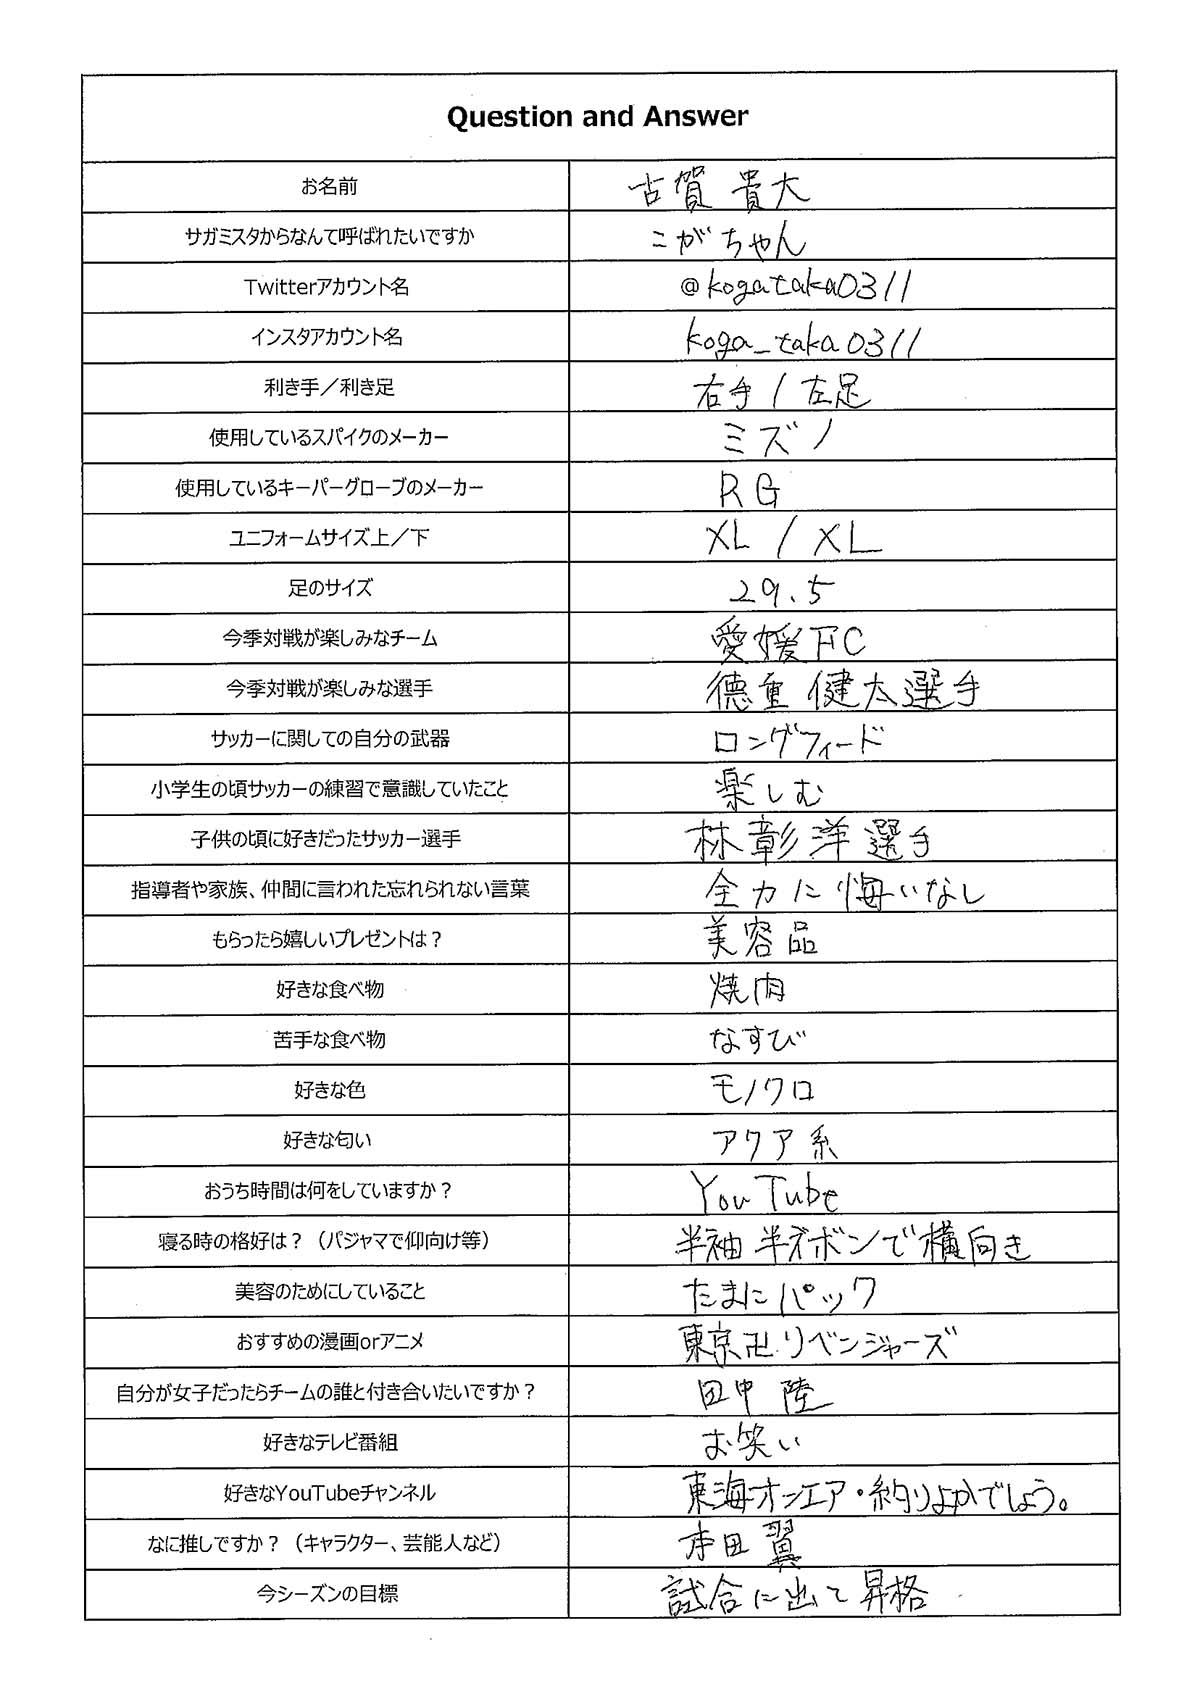 Question and Answer
お名前 古賀 貴大
サガミスタからなんて呼ばれたいですか こがちゃん
Twitterアカウント名 @kogataka0311
インスタアカウント名 koga_taka0311
利き手／利き足 右手 / 左足
使用しているスパイクのメーカー ミズノ
使用しているキーパーグローブのメーカー RG
ユニフォームサイズ上／下 XL / XL
足のサイズ 29.5
今季対戦が楽しみなチーム 愛媛FC
今季対戦が楽しみな選手 徳重 健太選手
サッカーに関しての自分の武器 ロングフィード
小学生の頃サッカーの練習で意識していたこと 楽しむ
子供の頃に好きだったサッカー選手 林彰洋選手
指導者や家族、仲間に言われた忘れられない言葉 全力に悔いなし
もらったら嬉しいプレゼントは？ 美容品
好きな食べ物 焼肉
苦手な食べ物 なすび
好きな色 モノクロ
好きな匂い アクア系
おうち時間は何をしていますか？ YouTube
寝る時の格好は？（パジャマで仰向け等） 半袖 半ズボンで横向き
美容のためにしていること たまにパック
おすすめの漫画orアニメ 東京卍リベンジャーズ
自分が女子だったらチームの誰と付き合いたいですか？ 田中 陸
好きなテレビ番組 お笑い
好きなYouTubeチャンネル 東海オンエア・釣りよかでしょう。
なに推しですか？（キャラクター、芸能人など） 本田 翼
今シーズンの目標 試合に出て昇格